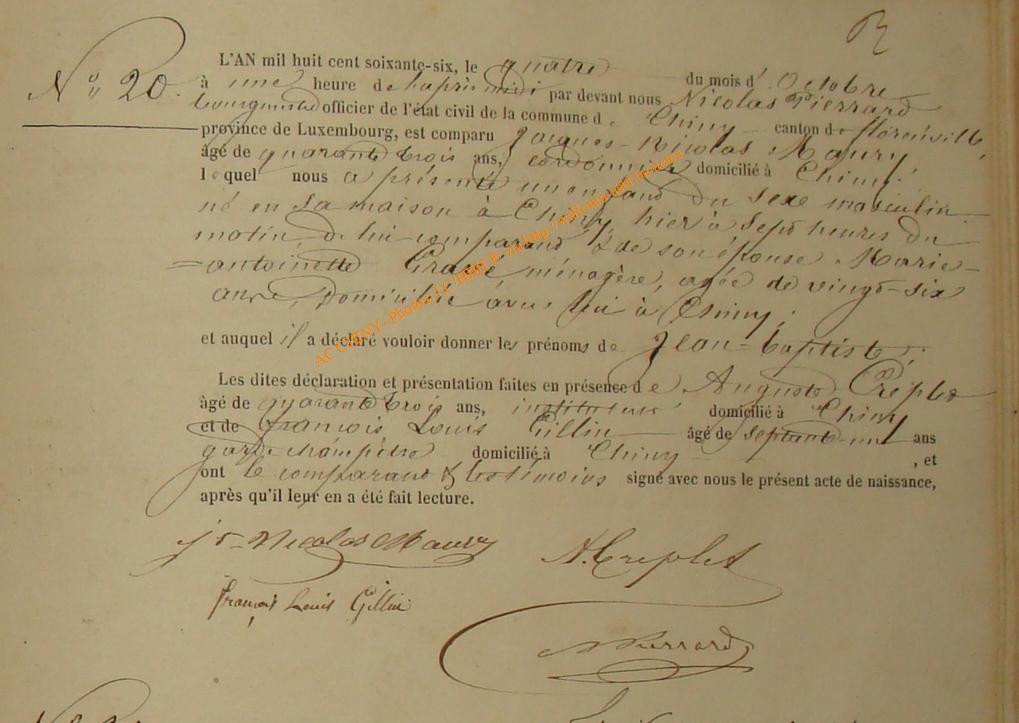 L'AN mil huit cent soixante-six, le quatre du mois d' Octobre
N° 20. à une heure de l'après midi par devant nous Nicolas Pierrard
bourgmestre officier de l'état civil de la commune de Chiny canton de florenville,
province de Luxembourg, est comparu Jacques-Nicolas Maury
âgé de quarante trois ans, cordonnier domicilié à Chiny.
lequel nous a présenté un enfant du sexe masculin
né en sa maison à Chiny, hier à sept heures du
matin, de lui comparant & de son épouse Marie-
=antoinette ménagère, agée de vingt-six
ans, domiciliée avec lui à Chiny;
et auquel il a déclaré vouloir donner les prénoms de Jean-baptiste;
Les dites déclaration et présentation faites en présence de Auguste Créplet
âgé de quarante trois ans, instituteur domicilié à Chiny
et de françois Louis Gillin âgé de septante-un ans
garde champêtre domicilié à Chiny, et
ont le comparant & les témoins signé avec nous le présent acte de naissance,
après qu'il leur en a été fait lecture.
Nicolas Maury A. Creplet
François Louis Gillin
N Pierrard
ACCHINY- Photos